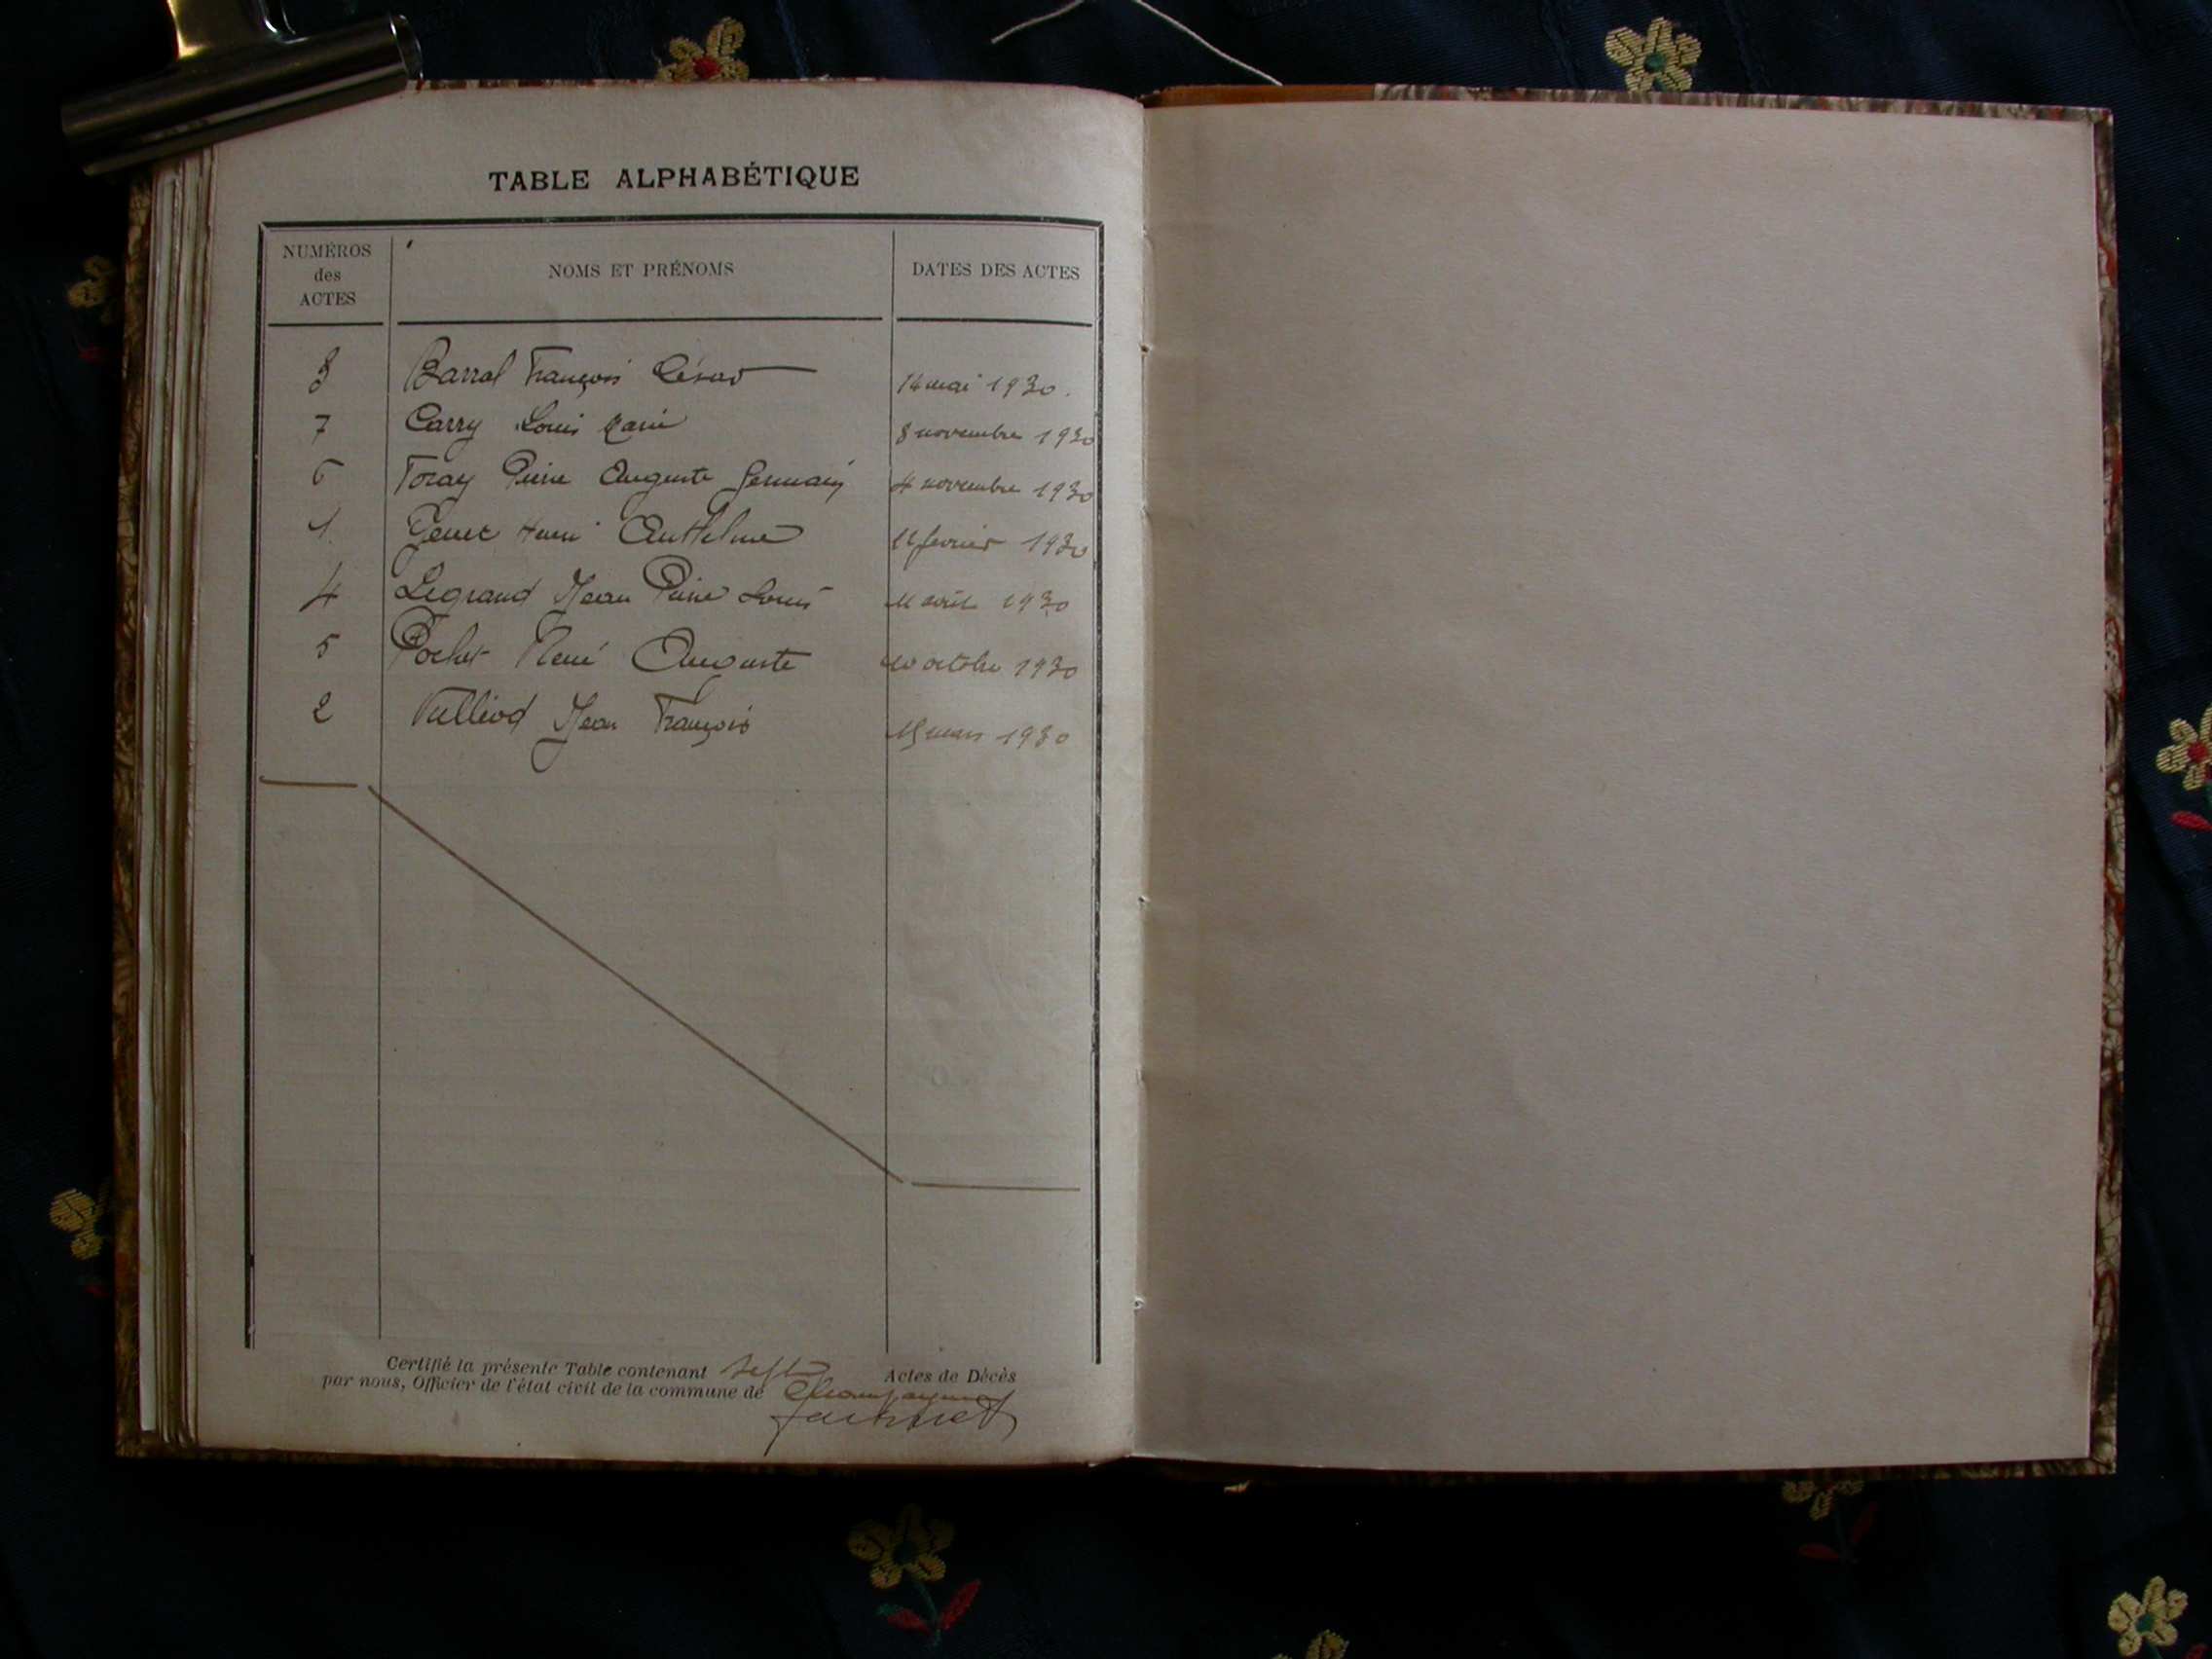 TABLE ALPHABÉTIQUE
NUMÉROS des ACTES NOMS ET PRÉNOMS DATES DES ACTES
3 Barral François César 14 mai 1930.
7 Carry Louis Marie 8 novembre 1930
6 Foray Pierre Auguste Germain 4 novembre 1930
1 Henri Anthelme février 1930
4 Legrand Jean Pierre Louis 11 août 1930
5 Pochet René Auguste 10 octobre 1930
2 Vulliod Jean François 15 mars 1930
Certifié la présente Table contenant sept Actes de Décès
par nous, Officier de l'état civil de la commune de